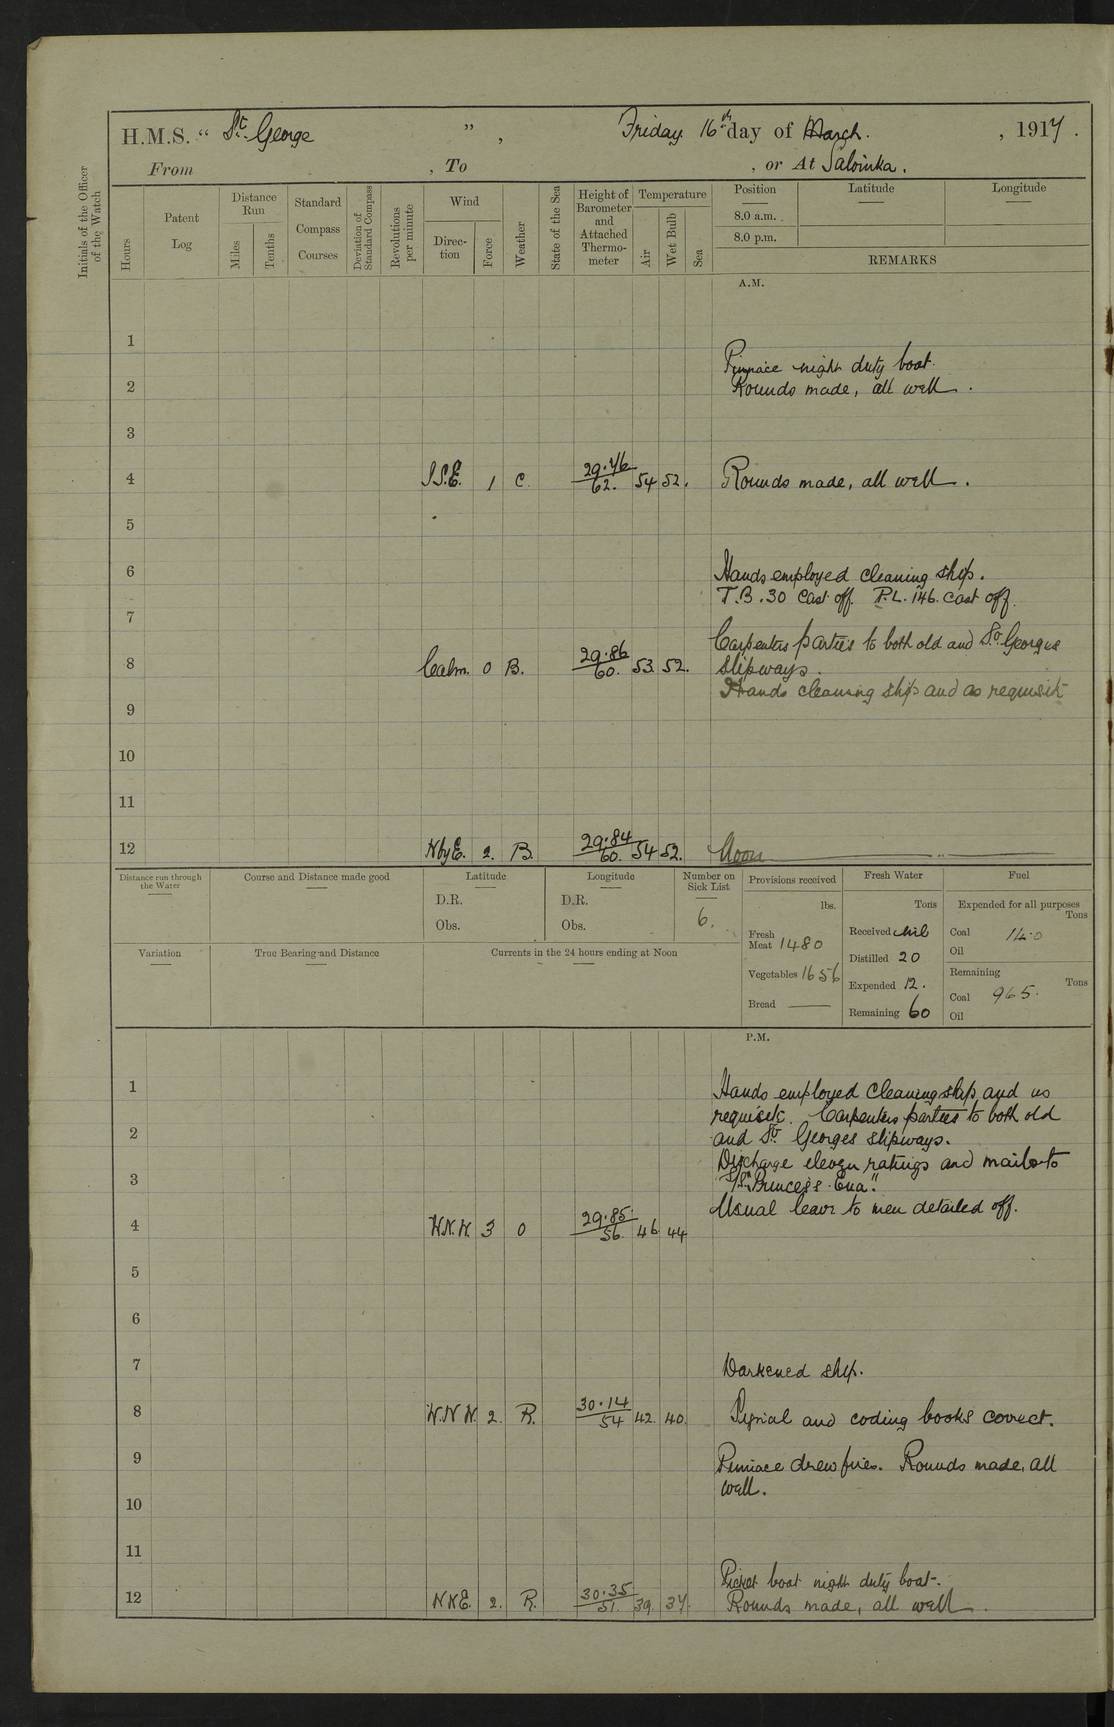 H.M.S. “ St. George ” , Friday 16th day of March. , 1917 .
From , To , or At Salonika.
Initials of the Officer of the Watch
Hours
Patent Log
Distance Run
Miles
Tenths
Standard Compass Courses
Deviation of Standard Compass
Revolutions per minute
Wind
Direc-tion
Force
Weather
State of the Sea
Height of Barometer and Attached Thermo-meter
Temperature
Air
Wet Bulb
Sea
Position Latitude Longitude
8.0 a.m.
8.0 p.m.
REMARKS
A.M.
1
Pinnace night duty boat.
2 Rounds made, all well.
3
4 S.S.E. 1 C. 29.76 62. 54 52. Rounds made, all well.
5
6 Hands employed cleaning ship.
T.B. 30 cast off. P.L. 146. cast off.
7
Carpenters parties to both old and St. Georges
8 Calm. 0 B. 29.86 60. 53. 52. slipways.
Hands cleaning ship and as requisite
9
10
11
12 N by E. 2. B. 29.84 60. 54 52. Noon
Distance run through the Water
Course and Distance made good
Latitude
D.R.
Obs.
Longitude
D.R.
Obs.
Number on Sick List
6.
Provisions received
lbs.
Fresh Meat 1480
Vegetables 1656
Bread ——
Fresh Water
Tons
Received Nil
Distilled 20
Expended 12.
Remaining 60
Fuel
Expended for all purposes
Tons
Coal
Oil
Remaining
Tons
Coal 965.
Oil
Variation
True Bearing and Distance
Currents in the 24 hours ending at Noon
P.M.
1 Hands employed cleaning ship and as
requisite. Carpenters parties to both old
2 and St. Georges slipways.
Discharge eleven ratings and mails to
3 S/S. "Princess Ena".
Usual leave to men detailed off.
4 N.N.W. 3 0 29.85 56. 46. 44
5
6
7 Darkened ship.
8 N.N.W. 2. R. 30.14 54 42. 40. Signal and coding books correct.
9 Pinnace drew fires. Rounds made, all
well.
10
11
Picket boat night duty boat.
12 NNE. 2. R. 30.35 51. 39. 37. Rounds made, all well.